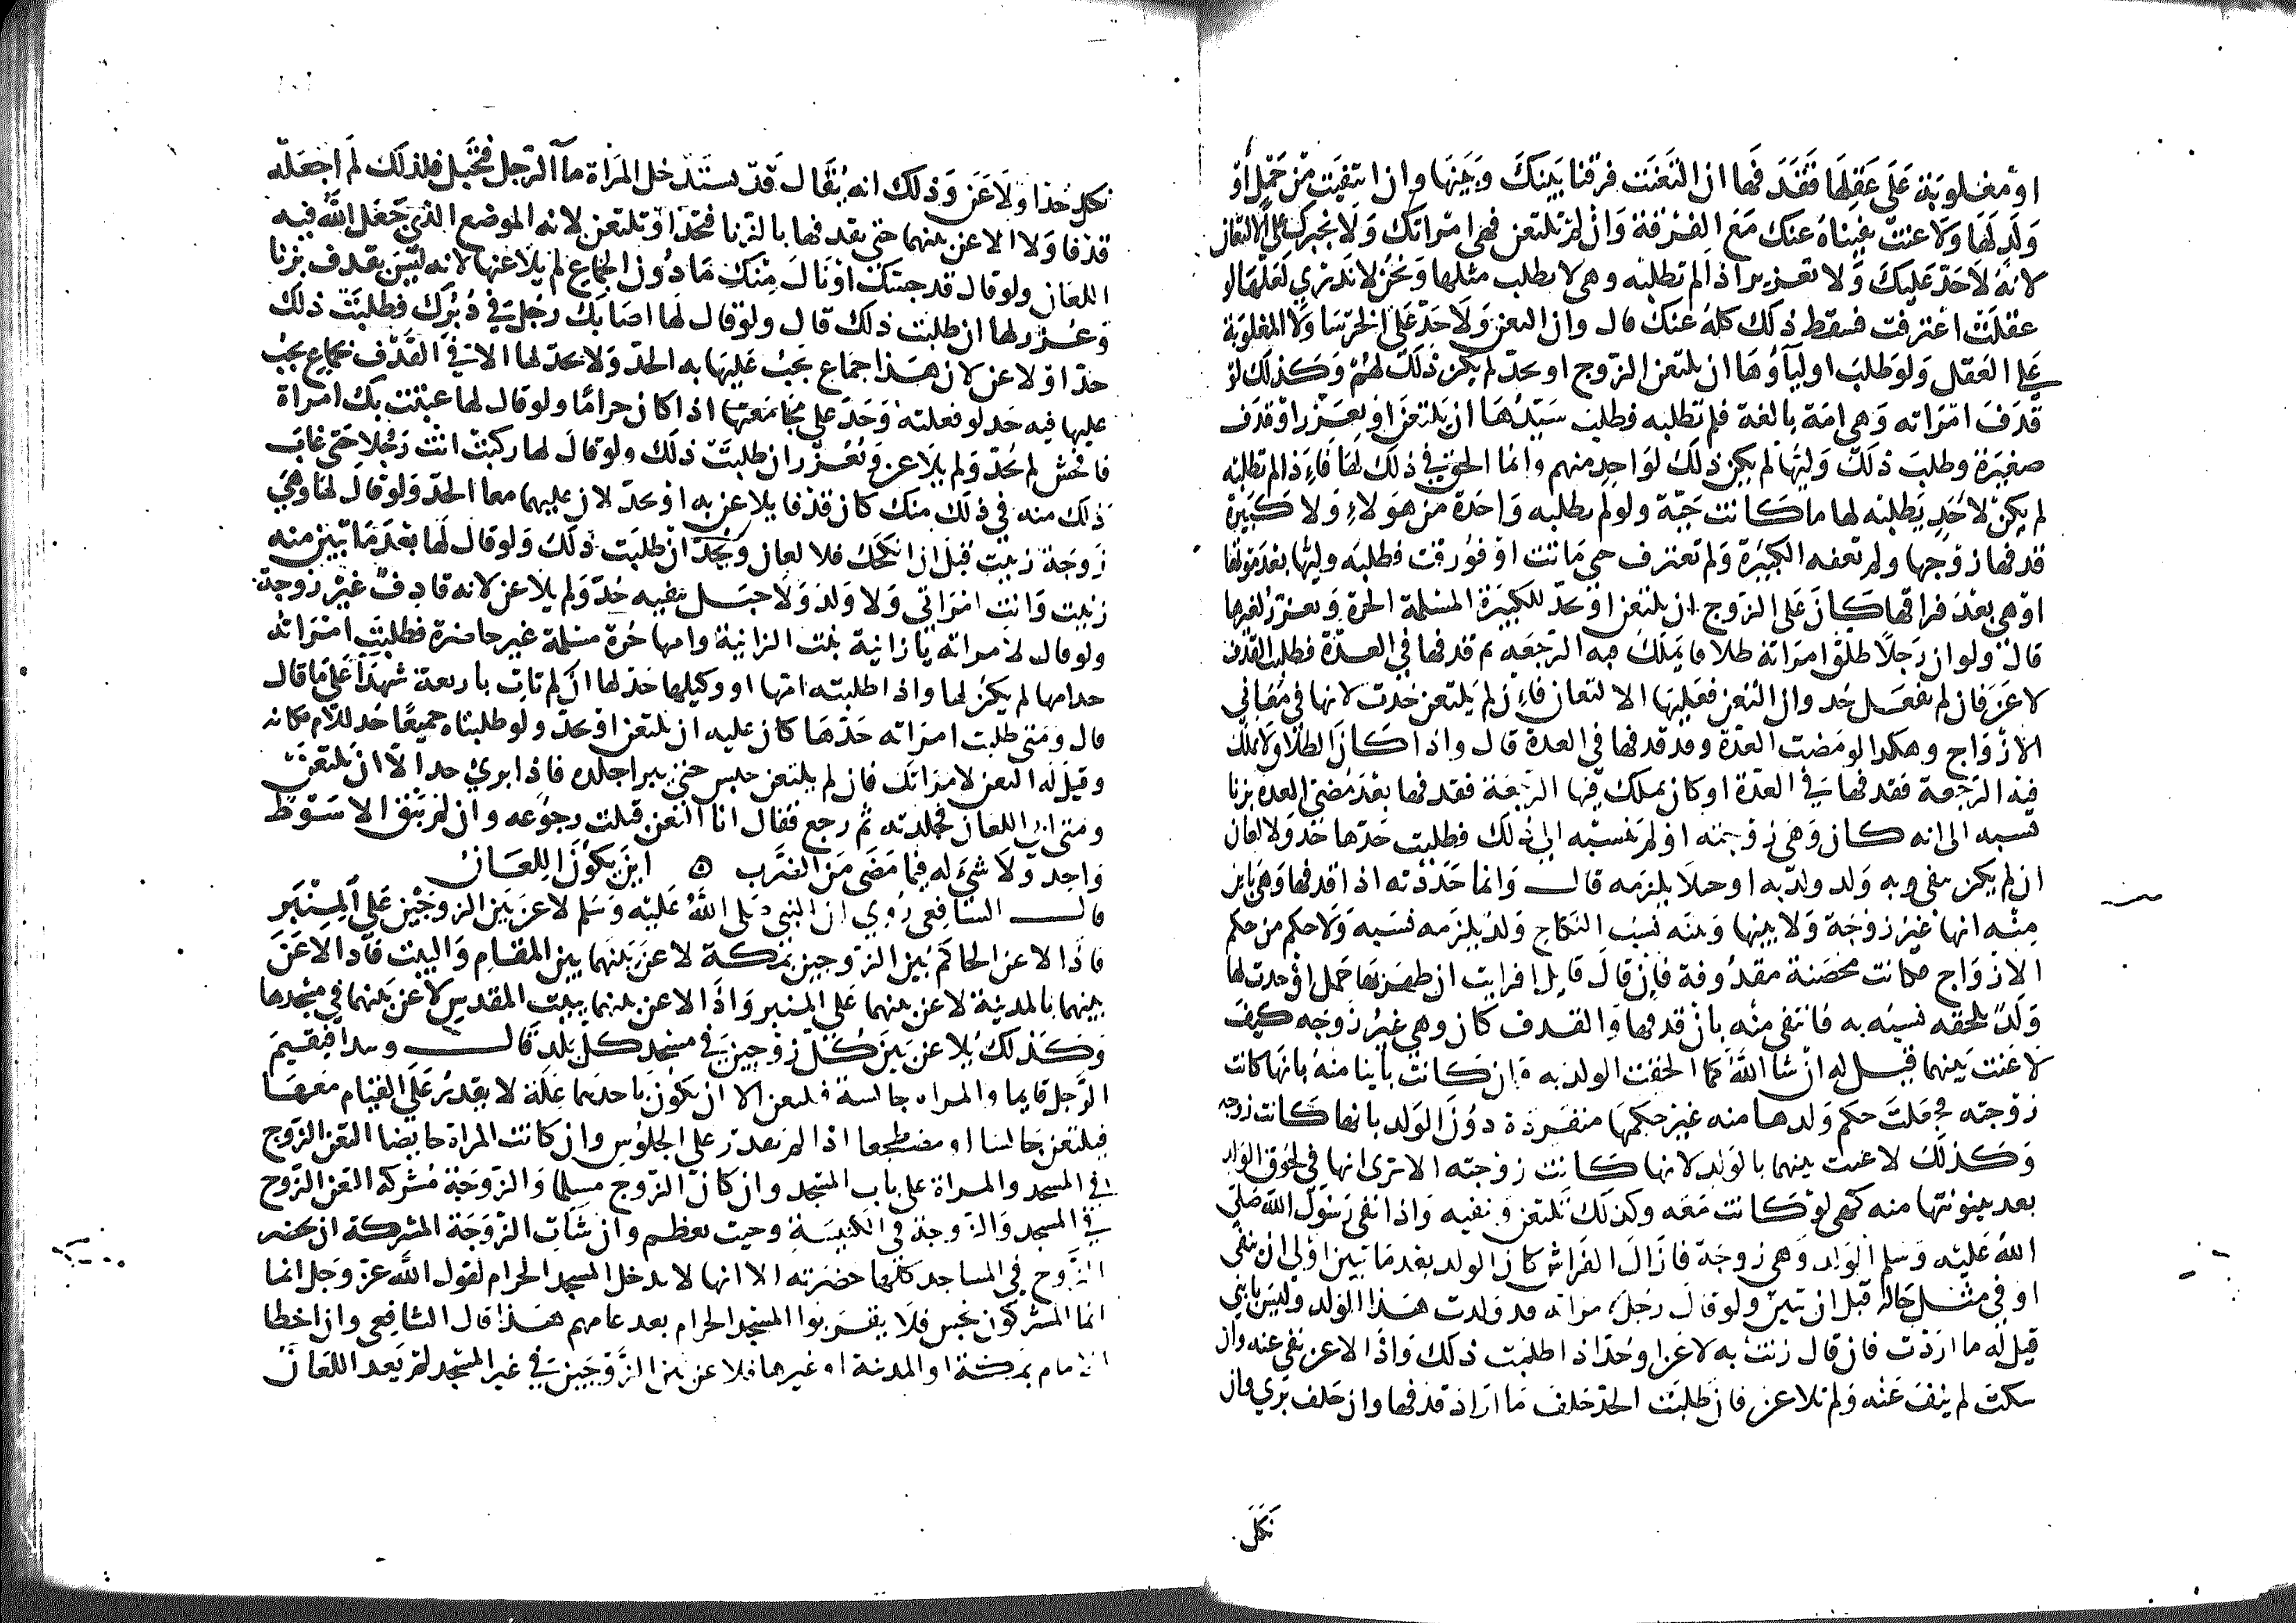 او مغلوبة على عقلها فقذفها ان التعنت فرقنا بينك وبينها وان انتفيت من حمل او
ولد لها ولاعنت نفيناه عنك مع الفرقة وان لم تلتعن فهي امراتك ولا نجبرك على الالتعان
لانه لا حد عليك ولا تعزير اذا لم تطلبه وهي لا يطلب مثلها ونحن لا ندري لعلها لو
عقلت اعترفت فسقط ذلك كله عنك قال وان التعن ولا حد على الخرسا ولا المغلوبة
على العقل ولو طلب اولياؤها ان يلتعن الزوج او يحد لم يكن ذلك لهم وكذلك لو
قذف امراته وهي امة بالغة فلم تطلبه فطلب سيدها ان يلتعن او يعزر او قذف
صغيرة وطلب ذلك وليها لم يكن ذلك لواحد منهم وانما الحق في ذلك لها فاذا لم تطلبه
لم يكن لاحد يطلبه لها ما كانت حية ولو لم يطلبه واحدة من هولاء ولا كبيرة
قذفها زوجها ولم تعفه الكبيرة ولم تعترف حتى ماتت او فورقت فطلبه وليها بعد موتها
او هي بعد فراقها كان على الزوج ان يلتعن او يحد للكبيرة المسلمة الحرة ويعزر لغيرها
قال ولو ان رجلا طلق امراته طلاقا يملك فيه الرجعة ثم قذفها في العدة فطلبت القذف
لاعن فان لم يفعل حد وان التعن فعليها الالتعان فاءن لم يلتعن حدت لانها في معاني
الازواج وهكذا لو مضت العدة وقد قذفها في العدة قال واذا كان الطلاق لا يملك
فيه الرجعة فقذفها في العدة او كان يملك فيها الرجعة فقذفها بعد مضي العدة بزنا
نسبه الى انه كان وهي زوجته او لم ينسبه الى ذلك فطلبت حدها حد ولا لعان
ان لم يكن ينفي به ولد ولد به او حملا يلزمه قال وانما حددته اذا قذفها وهي باين
منه انها غير زوجة ولا بينها وبينه نسب النكاح ولد يلزمه نسبه ولا حكم من حكم
الازواج فكانت محصنة مقذوفة فان قال قايل افرايت ان ظهر بها حمل او حدث لها
ولد يلحقه نسبه به فانتفى منه بان قذفها والقذف كان وهي غير زوجه كيف
لاعنت بينهما قيل له ان شا الله كما الحقت الولد به وان كانت باينا منه بانها كانت
زوجته فجعلت حكم ولدها منه غير حكمها منفردة دون الولد بانها كانت زوجه
وكذلك لاعنت بينهما بالولد لانها كانت زوجته الا ترى انها في لحوق الولد
بعد بينونتها منه كهي لو كانت معه وكذلك تلتعن ونفيه واذا نفى رسول الله صلى
الله عليه وسلم الولد وهي زوجة فازال الفراش كان الولد بعد ما تبين اولى ان ينفى
او في مثل حاله قبل ان تبين ولو قال رجل لامراته قد ولدت هذا الولد وليس بابني
قيل له ما اردت فان قال زنت به لاعن او حد اذا طلبت ذلك واذا لاعن نفي عنه وان
سكت لم ينف عنه ولم تلاعن فان طلبت الحد حلف ما اراد قذفها وان حلف بري وان
نكل
نكل حد او لاعن وذلك انه يقال قد تستدخل المراة ماآ الرجل فتحبل فلذلك لم اجعله
قذفا ولا الاعن بينهما حتى يقذفها بالزنا فتحد او تلتعن لانه الموضع الذي جعل الله فيه
اللعان ولو قال قد جبتك او نال منك ما دون الجماع لم يلاعنها لانه ليس بقذف بزنا
وعزر لها ان طلبت ذلك قال ولو قال لها اصابك رجل في دبرك فطلبت ذلك
حد او لاعن لان هذا جماع يجب عليها به الحد ولا حد لها الا في القذف بجماع يجب
عليها فيه حد لو فعلته وحد على مجامعها اذا كان حراما ولو قال لها عبثت بك امراة
فافحش لم يحد ولم يلاعن ويعزر ان طلبت ذلك ولو قال لها ركبت انت رجلا حتى غاب
ذلك منه في ذلك منك كان قذفا يلاعن به او يحد لان عليهما معا الحد ولو قال لها وهي
زوجة زنيت قبل ان انكحك فلا لعان ويحد ان طلبت ذلك ولو قال لها بعد ما تبين منه
زنيت وانت امراتي ولا ولد ولا حبل ينفيه حد ولم يلاعن لانه قاذف غير زوجة
ولو قال لامراته يا زانية بنت الزانية وامها حرة مسلمة غير حاضرة فطلبت امراته
حد امها لم يكن لها واذا طلبته امها او وكيلها حد لها ان لم تات باربعة شهدا على ما قال
قال ومتى طلبت امراته حدها كان عليه ان يلتعن او يحد ولو طلبتاه جميعا حد للام مكانه
وقيل له التعن لامراتك فان لم يلتعن حبس حتى يبرا جلده فاذا بري حد الا ان يلتعن
ومتى ابى اللعان فجلدته ثم رجع فقال انا التعن قبلت رجوعه وان لم يبق الا سوط
واحد ولا شي له فيما مضى من الضرب ه اين يكون اللعان
قال الشافعي روي ان النبي صلى الله عليه وسلم لاعن بين الزوجين على المنبر
فاذا لاعن الحاكم بين الزوجين بمكة لاعن بينهما بين المقام والبيت فاذا لاعن
بينهما بالمدينة لاعن بينهما على المنبر واذا لاعن بينهما ببيت المقدس لاعن بينهما في مسجدها
وكذلك يلاعن بين كل زوجين في مسجد كل بلد قال ويبدا فيقيم
الرجل قايما والمراه جالسة فيلتعن الا ان يكون باحدهما علة لا يقدر على القيام معها
فيلتعن جالسا او مضطجعا اذا لم يقدر على الجلوس وان كانت المراة حايضا التعن الزوج
في المسجد والمراة على باب المسجد وان كان الزوج مسلما والزوجة مشركة التعن الزوج
في المسجد والزوجة في الكنيسة وحيث تعظم وان شات الزوجة المشركة ان تحضر
الزوج في المساجد كلها حضرته الا انها لا تدخل المسجد الحرام لقول الله عز وجل انما
انما المشركون نجس فلا يقربوا المسجد الحرام بعد عامهم هذا قال الشافعي وان اخطا
الامام بمكة او المدينة او غيرها فلاعن بين الزوجين في غير المسجد لم يعد اللعان